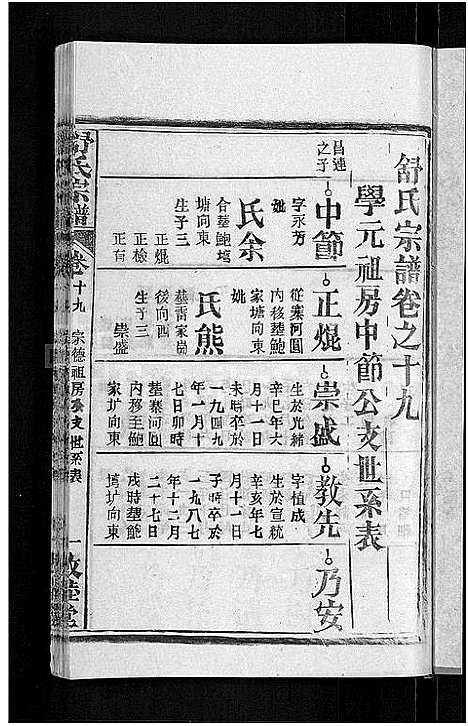 舒氏宗譜卷之十九
學元祖房中節公支世系表
昌連
之子
中節
字永芳
妣
氏余
合塟鮑塆
塘向東
生子三
正焜
正檢
正有
正焜
從寨河圓
內移塟鮑
家塘向東
妣
氏熊
塟雷家崗
後向西
生子一
崇盛
崇盛
生於光緒
辛巳年六
月十一日
未時卒於
一九四九
年一月十
七日卯時
塟寨河圓
內移至鮑
家圹向東
教先
字植成
生於宣統
辛亥年七
月十一日
子時卒於
一九八七
年十二月
二十七日
戌時塟鮑
塆圹向東
乃安
舒氏宗譜
卷十九
宗德祖房公支世系表
一
敦睦堂